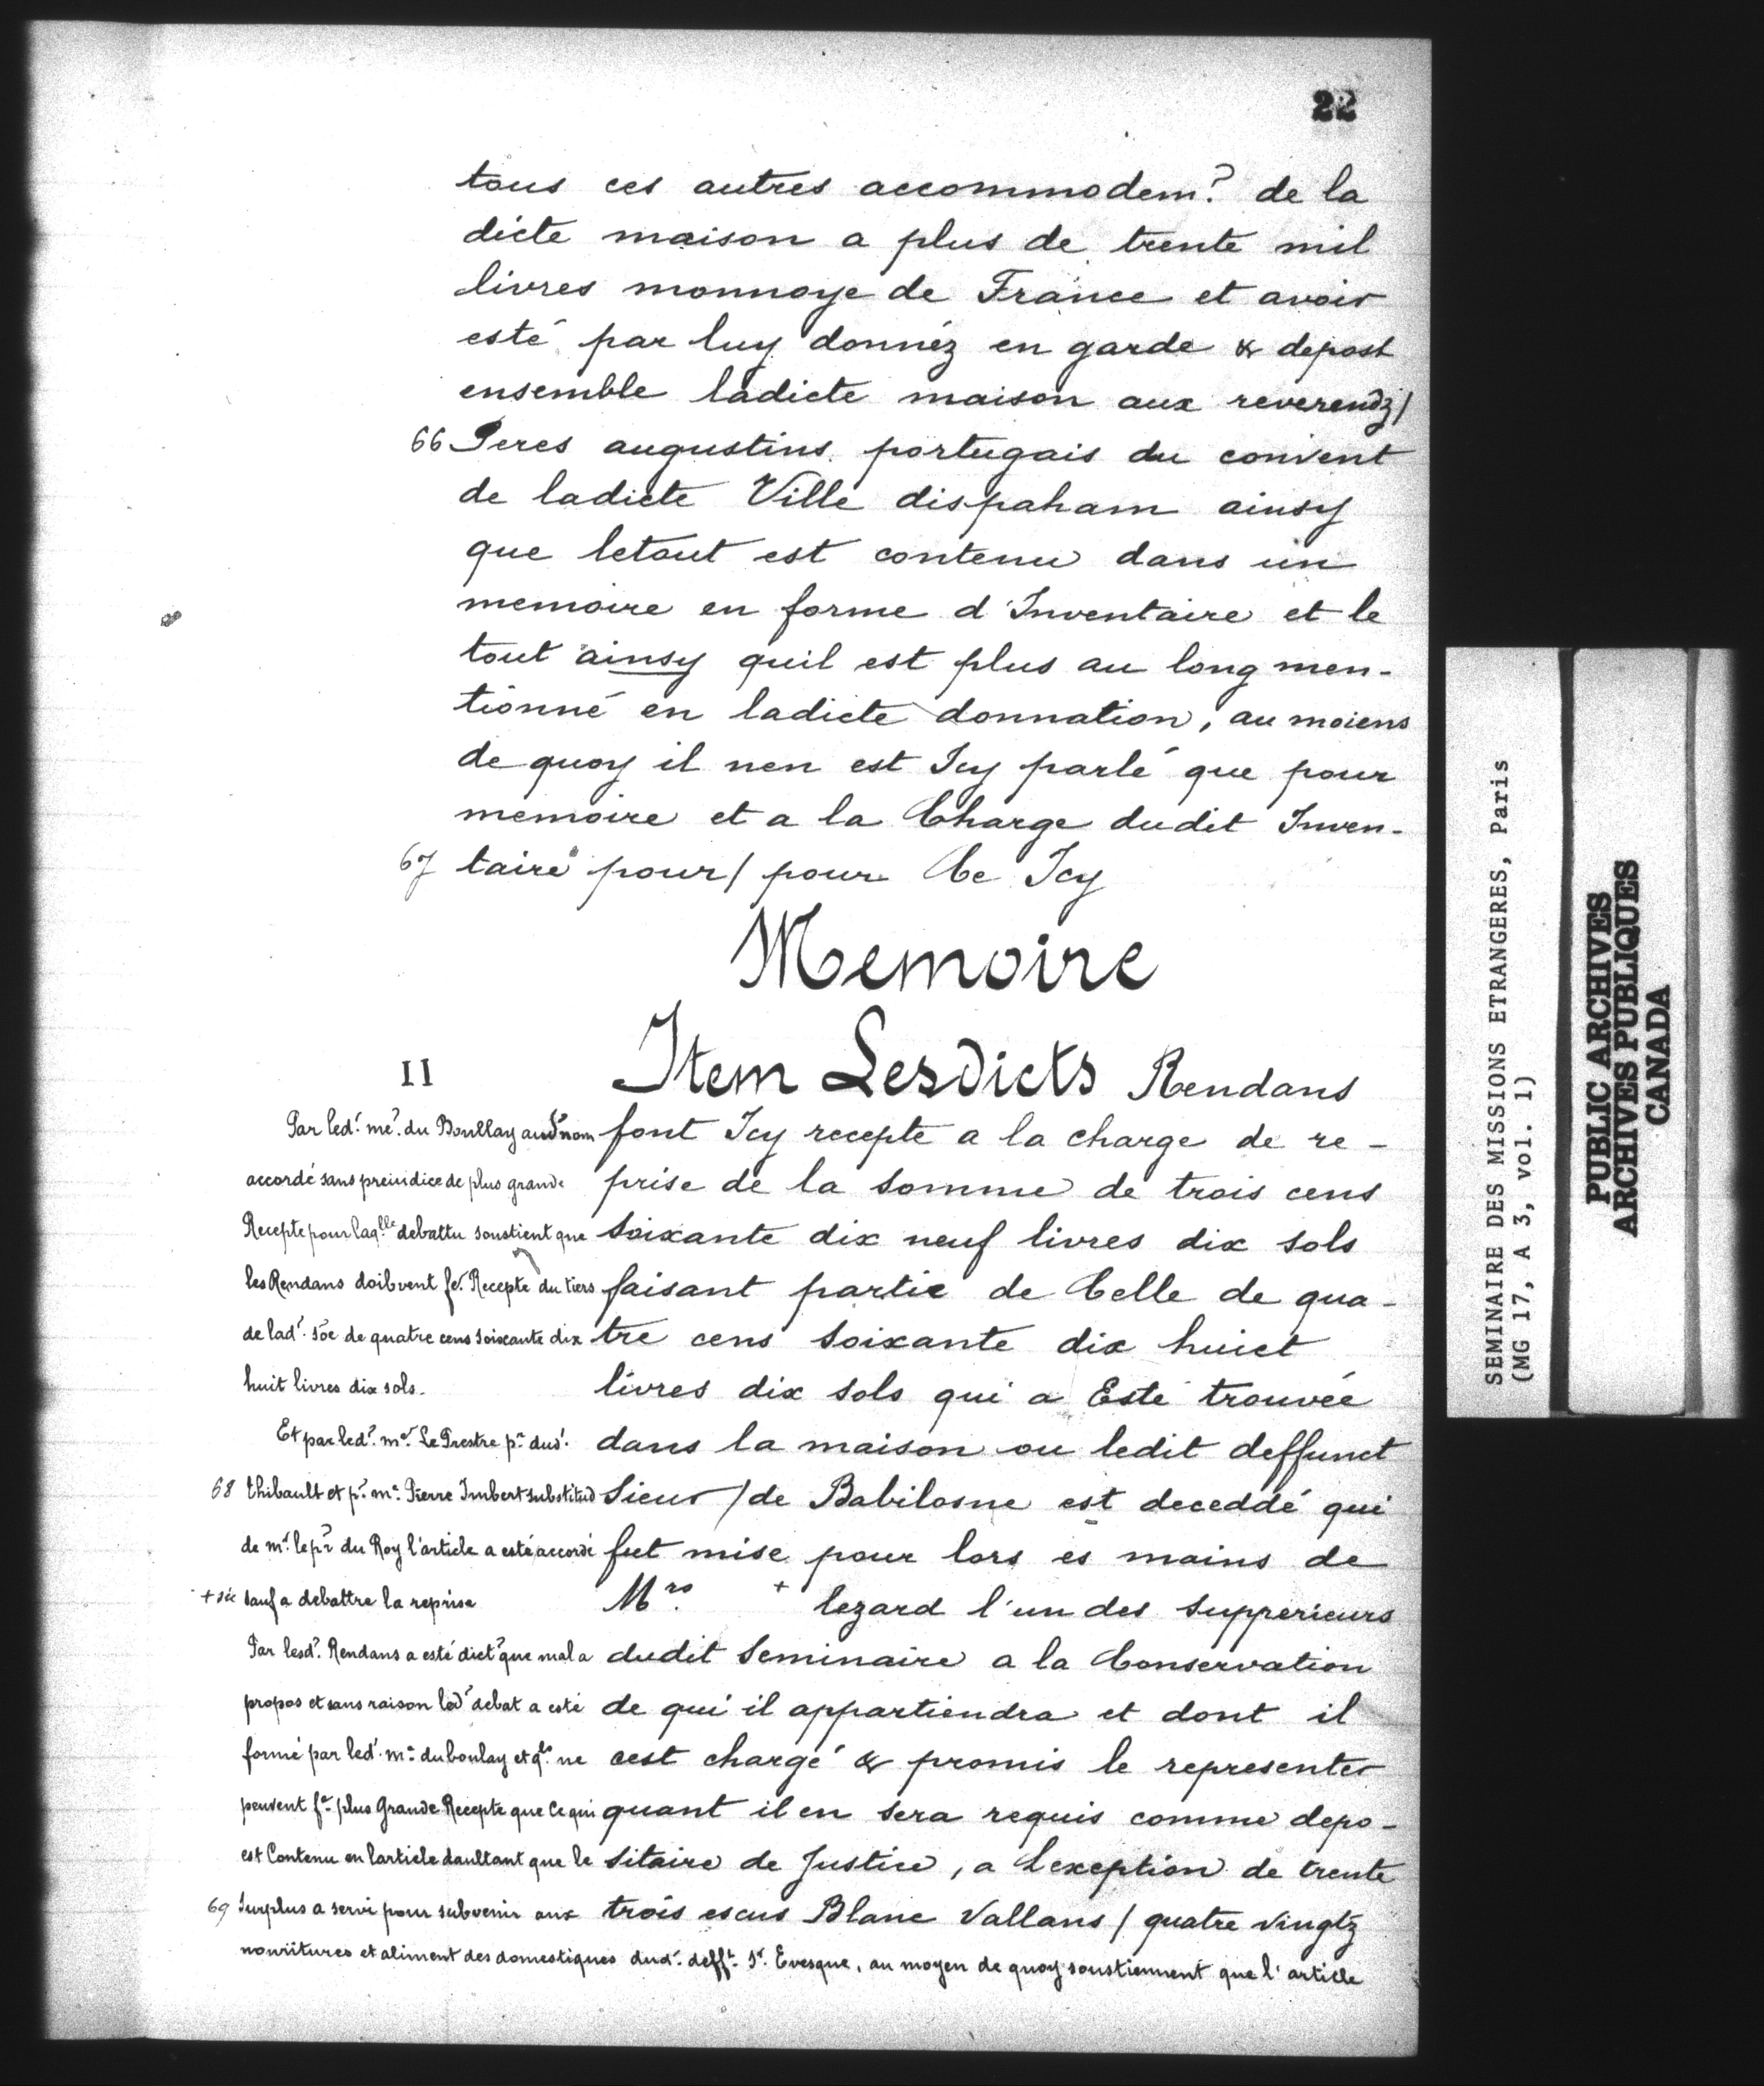 22
tous ces autres accommodem.t de la
dicte maison a plus de trente mil
livres monnoye de France et avoir
esté par luy donnéz en garde & depost
ensemble ladicte maison aux reverendz/
66 Peres augustins portugais du convent
de ladicte Ville dispaham ainsy
que letout est contenu dans un
memoire en forme d'Inventaire et le
tout ainsy quil est plus au long men-
tionné en ladicte donnation, au moiens
de quoy il nen est Icy parlé que pour
memoire et a la Charge dudit Inven-
67 taire pour/ pour Ce Icy
Memoire
II
Item Lesdicts Rendans
font Icy recepte a la charge de re-
prise de la somme de trois cens
soixante dix neuf livres dix sols
faisant partie de Celle de qua-
tre cens soixante dix huict
livres dix sols qui a Esté trouvée
dans la maison ou ledit deffunct
Sieur / de Babilosne est deceddé qui
fut mise pour lors es mains de
Mrs. + lezard l'un des supperieurs
dudit Seminaire a la Conservation
de qui il appartiendra et dont il
cest chargé & promis le representer
quant il en sera requis comme depo-
sitaire de Justice, a Lexeption de trente
trois escus Blanc Vallans / quatre vingtz
Par led. me. du Boullay aud. nom
accordé sans preiudice de plus grande
Recepte pour laqlle debattu soustient que
les Rendans doibvent fe. Recepte du tiers
de lad. söe de quatre cens soixante dix
huit livres dix sols.
Et par led. mr. Le Prestre pr. dud.
68 thibault et pr. me. Pierre Imbert substitud
de mr. le pr. du Roy l'article a esté accordé
+ sic sauf a debattre la reprise
Par lesd. Rendans a esté dict que mal a
propos et sans raison led. debat a esté
formé par led. me. du boulay et qls. ne
peuvent fe. plus Grande Recepte que Ce qui
est Contenu en larticle daultant que le
69 Surplus a servi pour subvenir aux
nourritures et aliment des domestiques dud. defft. Sr. Evesque, au moyen de quoy soustiennent que l'article
SEMINAIRE DES MISSIONS ETRANGERES, Paris
(MG 17, A 3, vol. 1)
PUBLIC ARCHIVES
ARCHIVES PUBLIQUES
CANADA